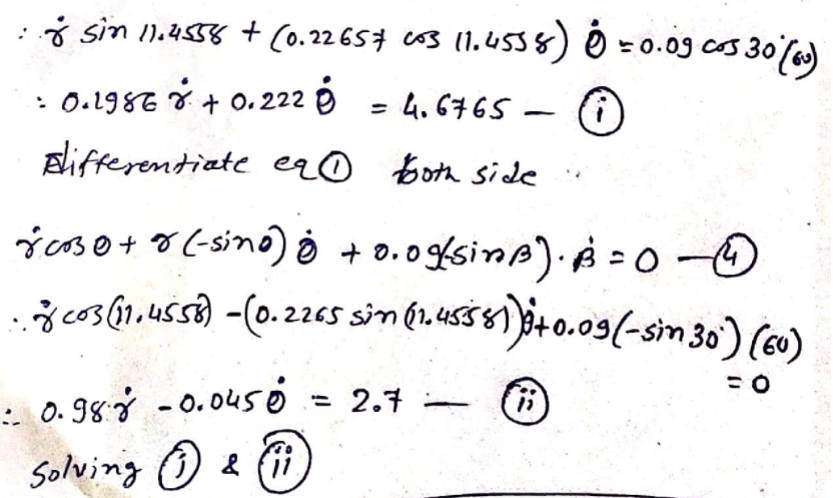 : ṙ sin 11.4558 + (0.22657 cos 11.4558) θ̇ = 0.09 cos 30°(60)
: 0.1986 ṙ + 0.222 θ̇ = 4.6765 — (i)
Differentiate eq ① both side
ṙ cos θ + r (-sin θ) θ̇ + 0.09(-sin β). β̇ = 0 — ④
∴ ṙ cos(11.4558) - (0.2265 sin (11.4558)) θ̇ + 0.09(-sin 30°) (60)
= 0
∴ 0.98 ṙ - 0.045 θ̇ = 2.7 — (ii)
Solving (i) & (ii)